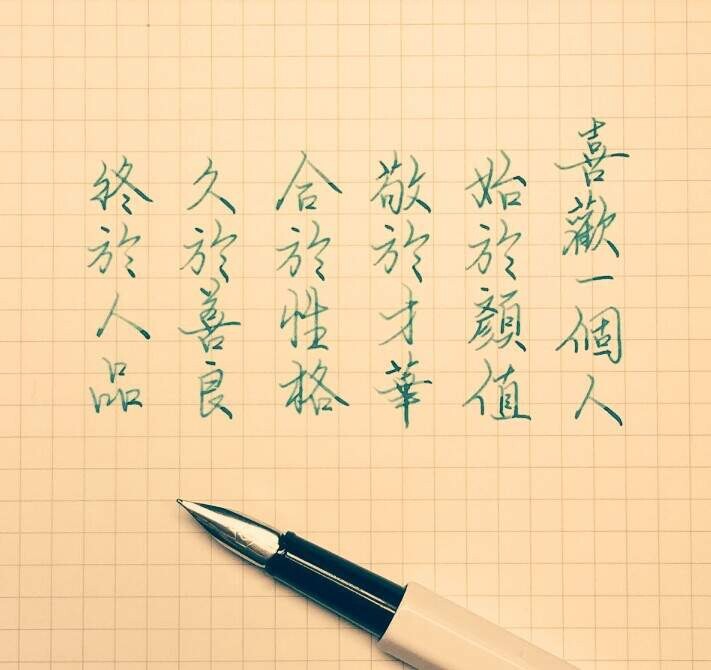 喜歡一個人
始於顏值
敬於才華
合於性格
久於善良
終於人品